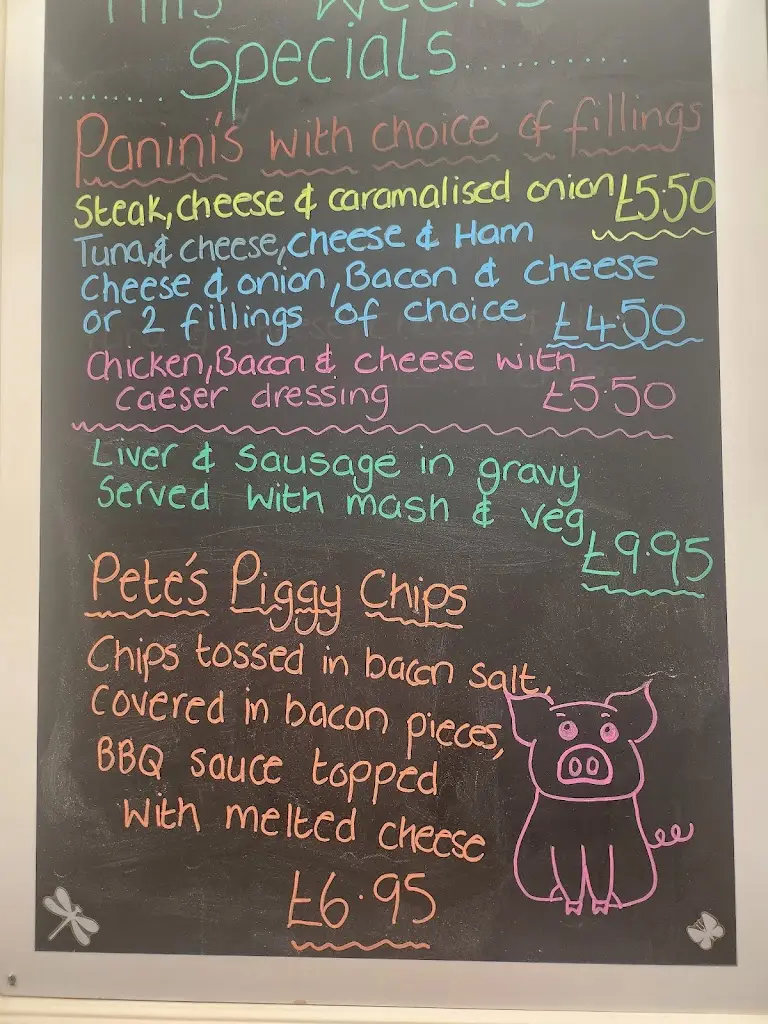 This Weeks
Specials..........
Panini's with choice of fillings
Steak, cheese & caramalised onion £5.50
Tuna,& cheese, cheese & Ham
Cheese & onion, Bacon & cheese
or 2 fillings of choice £4.50
Chicken, Bacon & cheese with
caeser dressing £5.50
Liver & Sausage in gravy
Served with mash & veg
£9.95
Pete's Piggy Chips
Chips tossed in bacon salt,
covered in bacon pieces,
BBQ sauce topped
with melted cheese
£6.95